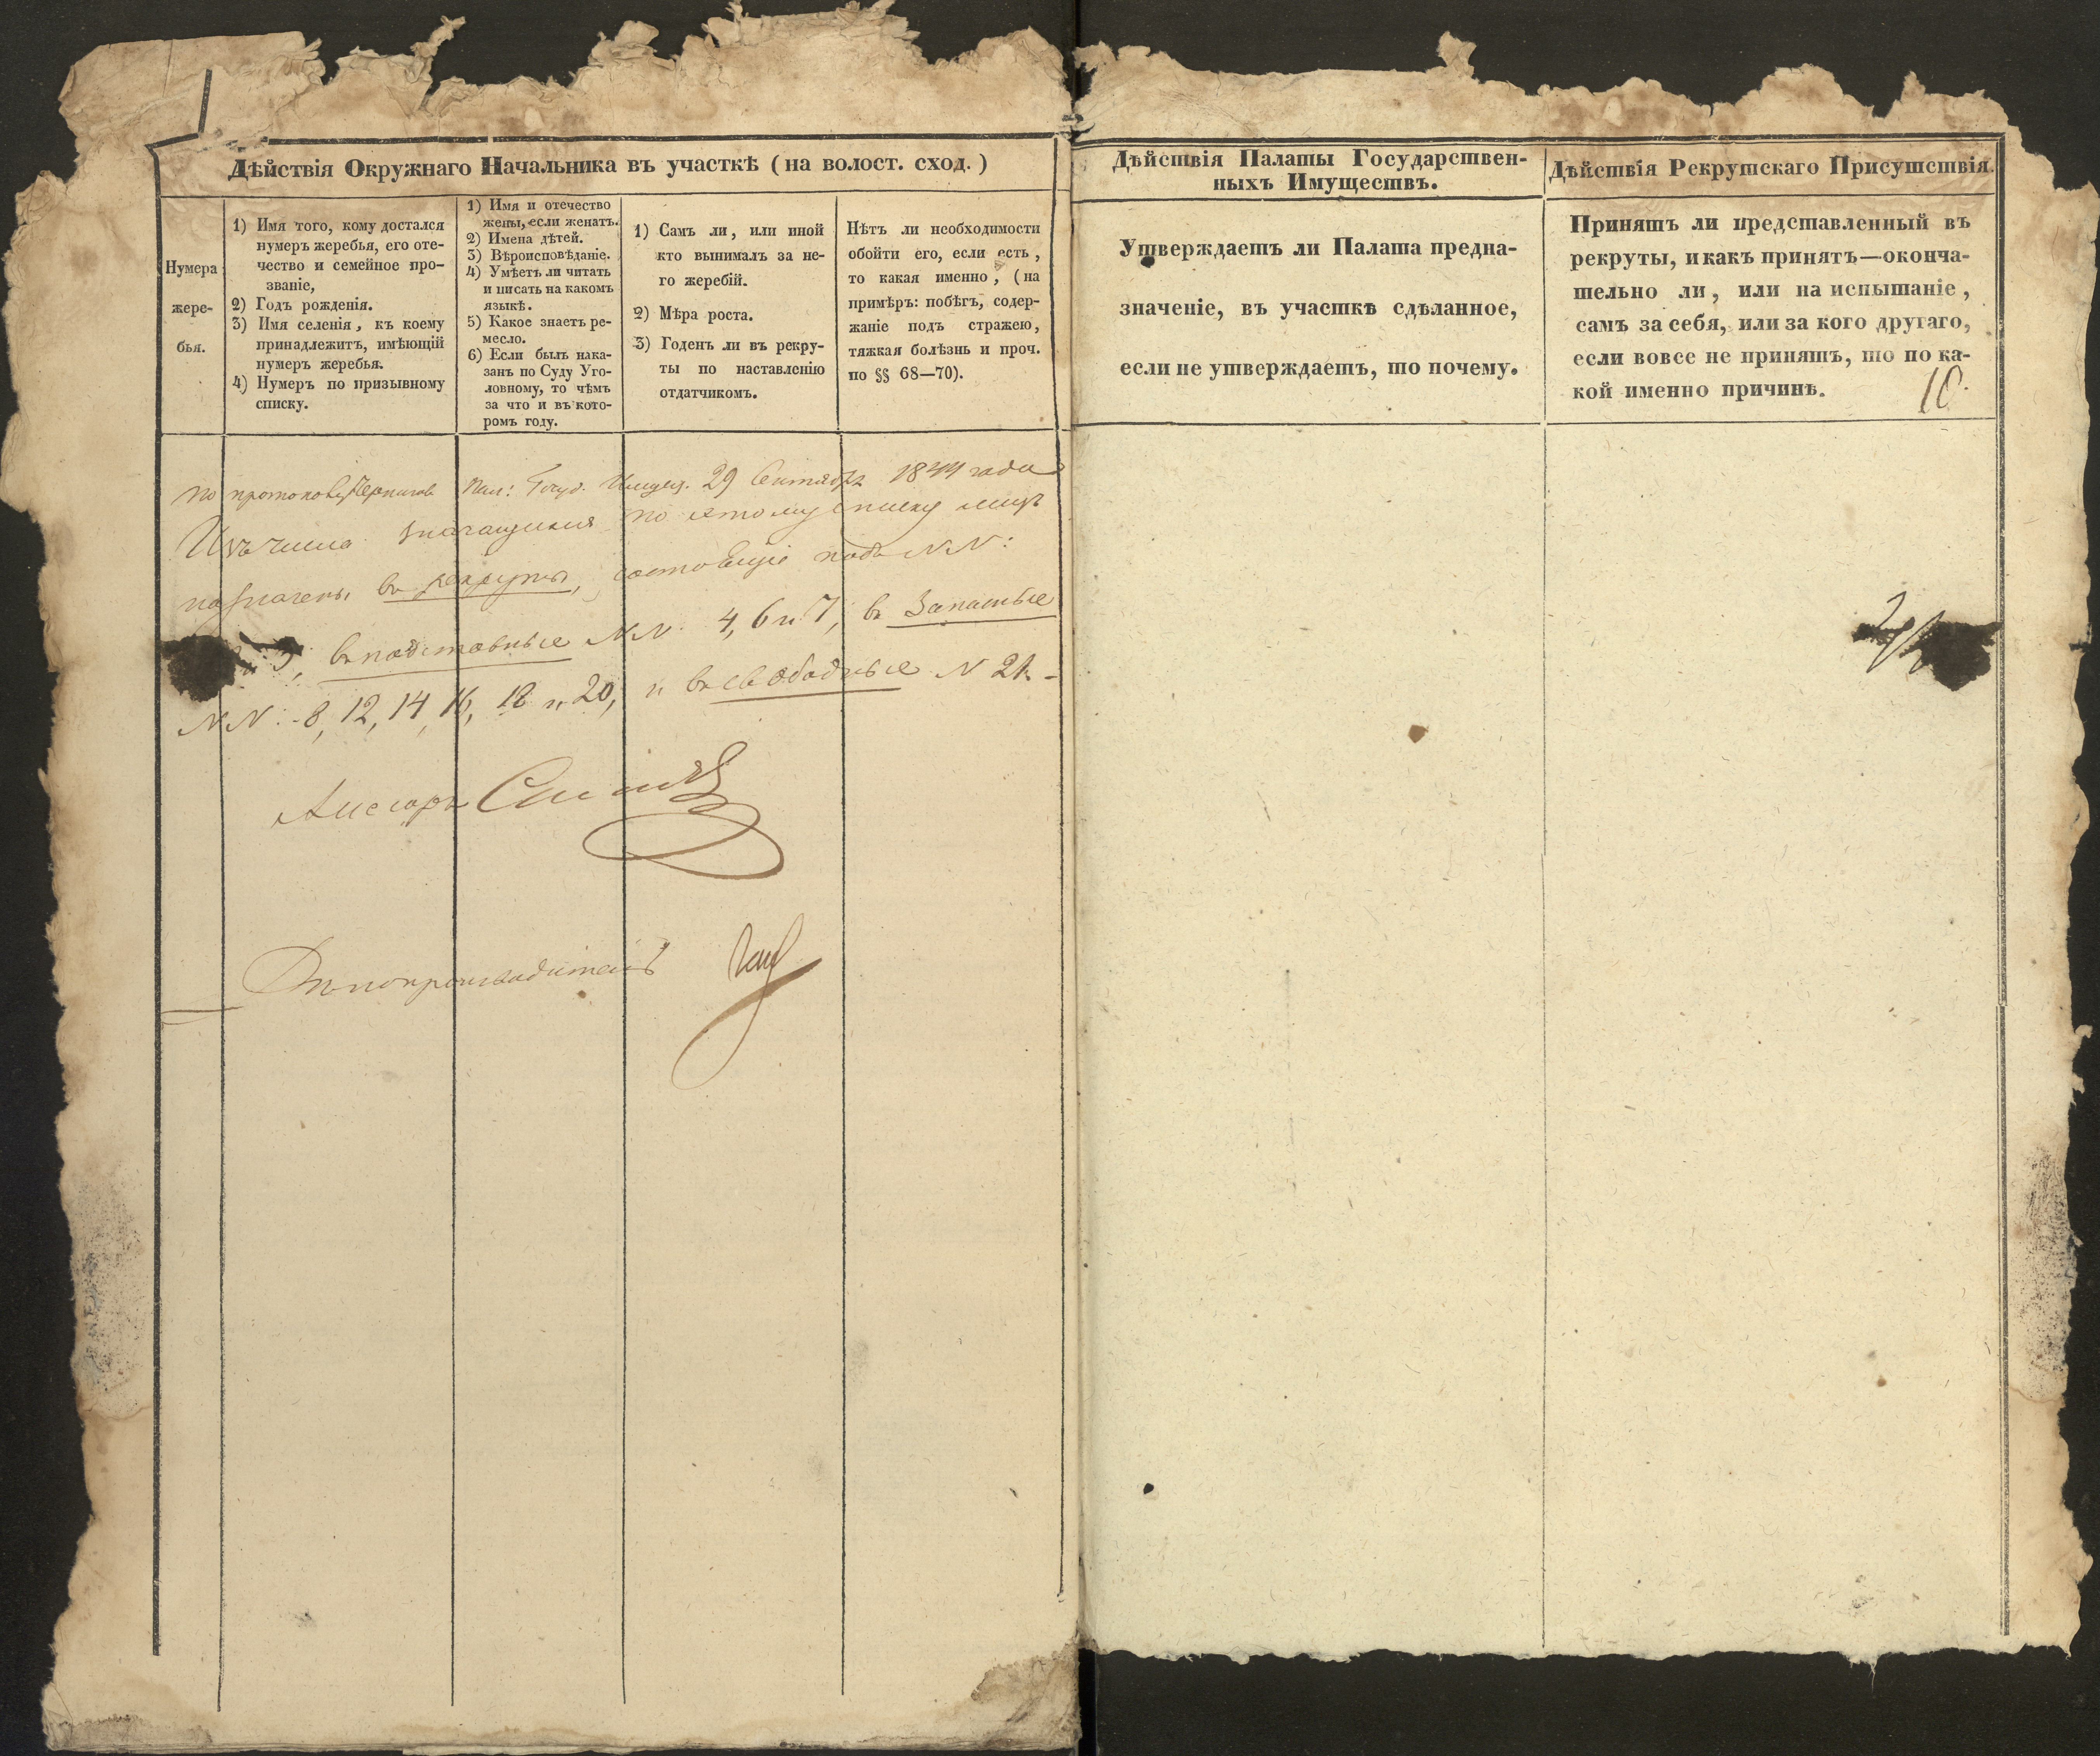 Дѣйствія Окружнаго Начальника въ участкѣ (на волост. сход.)
Нумера
жере-
бья.
1) Имя того, кому достался
нумеръ жеребья, его оте-
чество и семейное про-
званіе,
2) Годъ рожденія.
3) Имя селенія, къ коему
принадлежитъ, имѣющій
нумеръ жеребья.
4) Нумеръ по призывному
списку.
1) Имя и отечество
жены, если женатъ.
2) Имена дѣтей.
3) Вѣроисповѣданіе.
4) Умѣетъ ли читать
и писать на какомъ
языкѣ.
5) Какое знаетъ ре-
месло.
6) Если былъ нака-
занъ по Суду Уго-
ловному, то чѣмъ
за что и въ кото-
ромъ году.
1) Самъ ли, или иной
кто вынималъ за не-
го жеребій.
2) Мѣра роста.
3) Годенъ ли въ рекру-
ты по наставленію
отдатчикомъ.
Нѣтъ ли необходимости
обойти его, если есть,
то какая именно, (на
примѣръ: побѣгъ, содер-
жаніе подъ стражею,
тяжкая болѣзнь и проч.
по §§ 68—70).
по протоколу Чернигов Пал: Госуд. Имущ. 29 Сентября 1844 года
Изъ числа значащихся по етому списку лицъ
назначены въ рекруты, состоящіе подъ NN:
и 3, въ подставные NN. 4, 6 и 7, въ Запасные
NN: 8, 12, 14, 16, 18 и 20, и въ свободные N 21. -
Ассесоръ
Дѣлопроизводитель
Дѣйствія Палаты Государствен-
ныхъ Имуществъ.
Утверждаетъ ли Палата предна-
значеніе, въ участкѣ сдѣланное,
если не утверждаетъ, то почему.
Дѣйствія Рекрутскаго Присутствія.
Принятъ ли представленный въ
рекруты, и какъ принятъ—оконча-
тельно ли, или на испытаніе,
самъ за себя, или за кого другаго,
если вовсе не принятъ, то по ка-
кой именно причинѣ.
10.